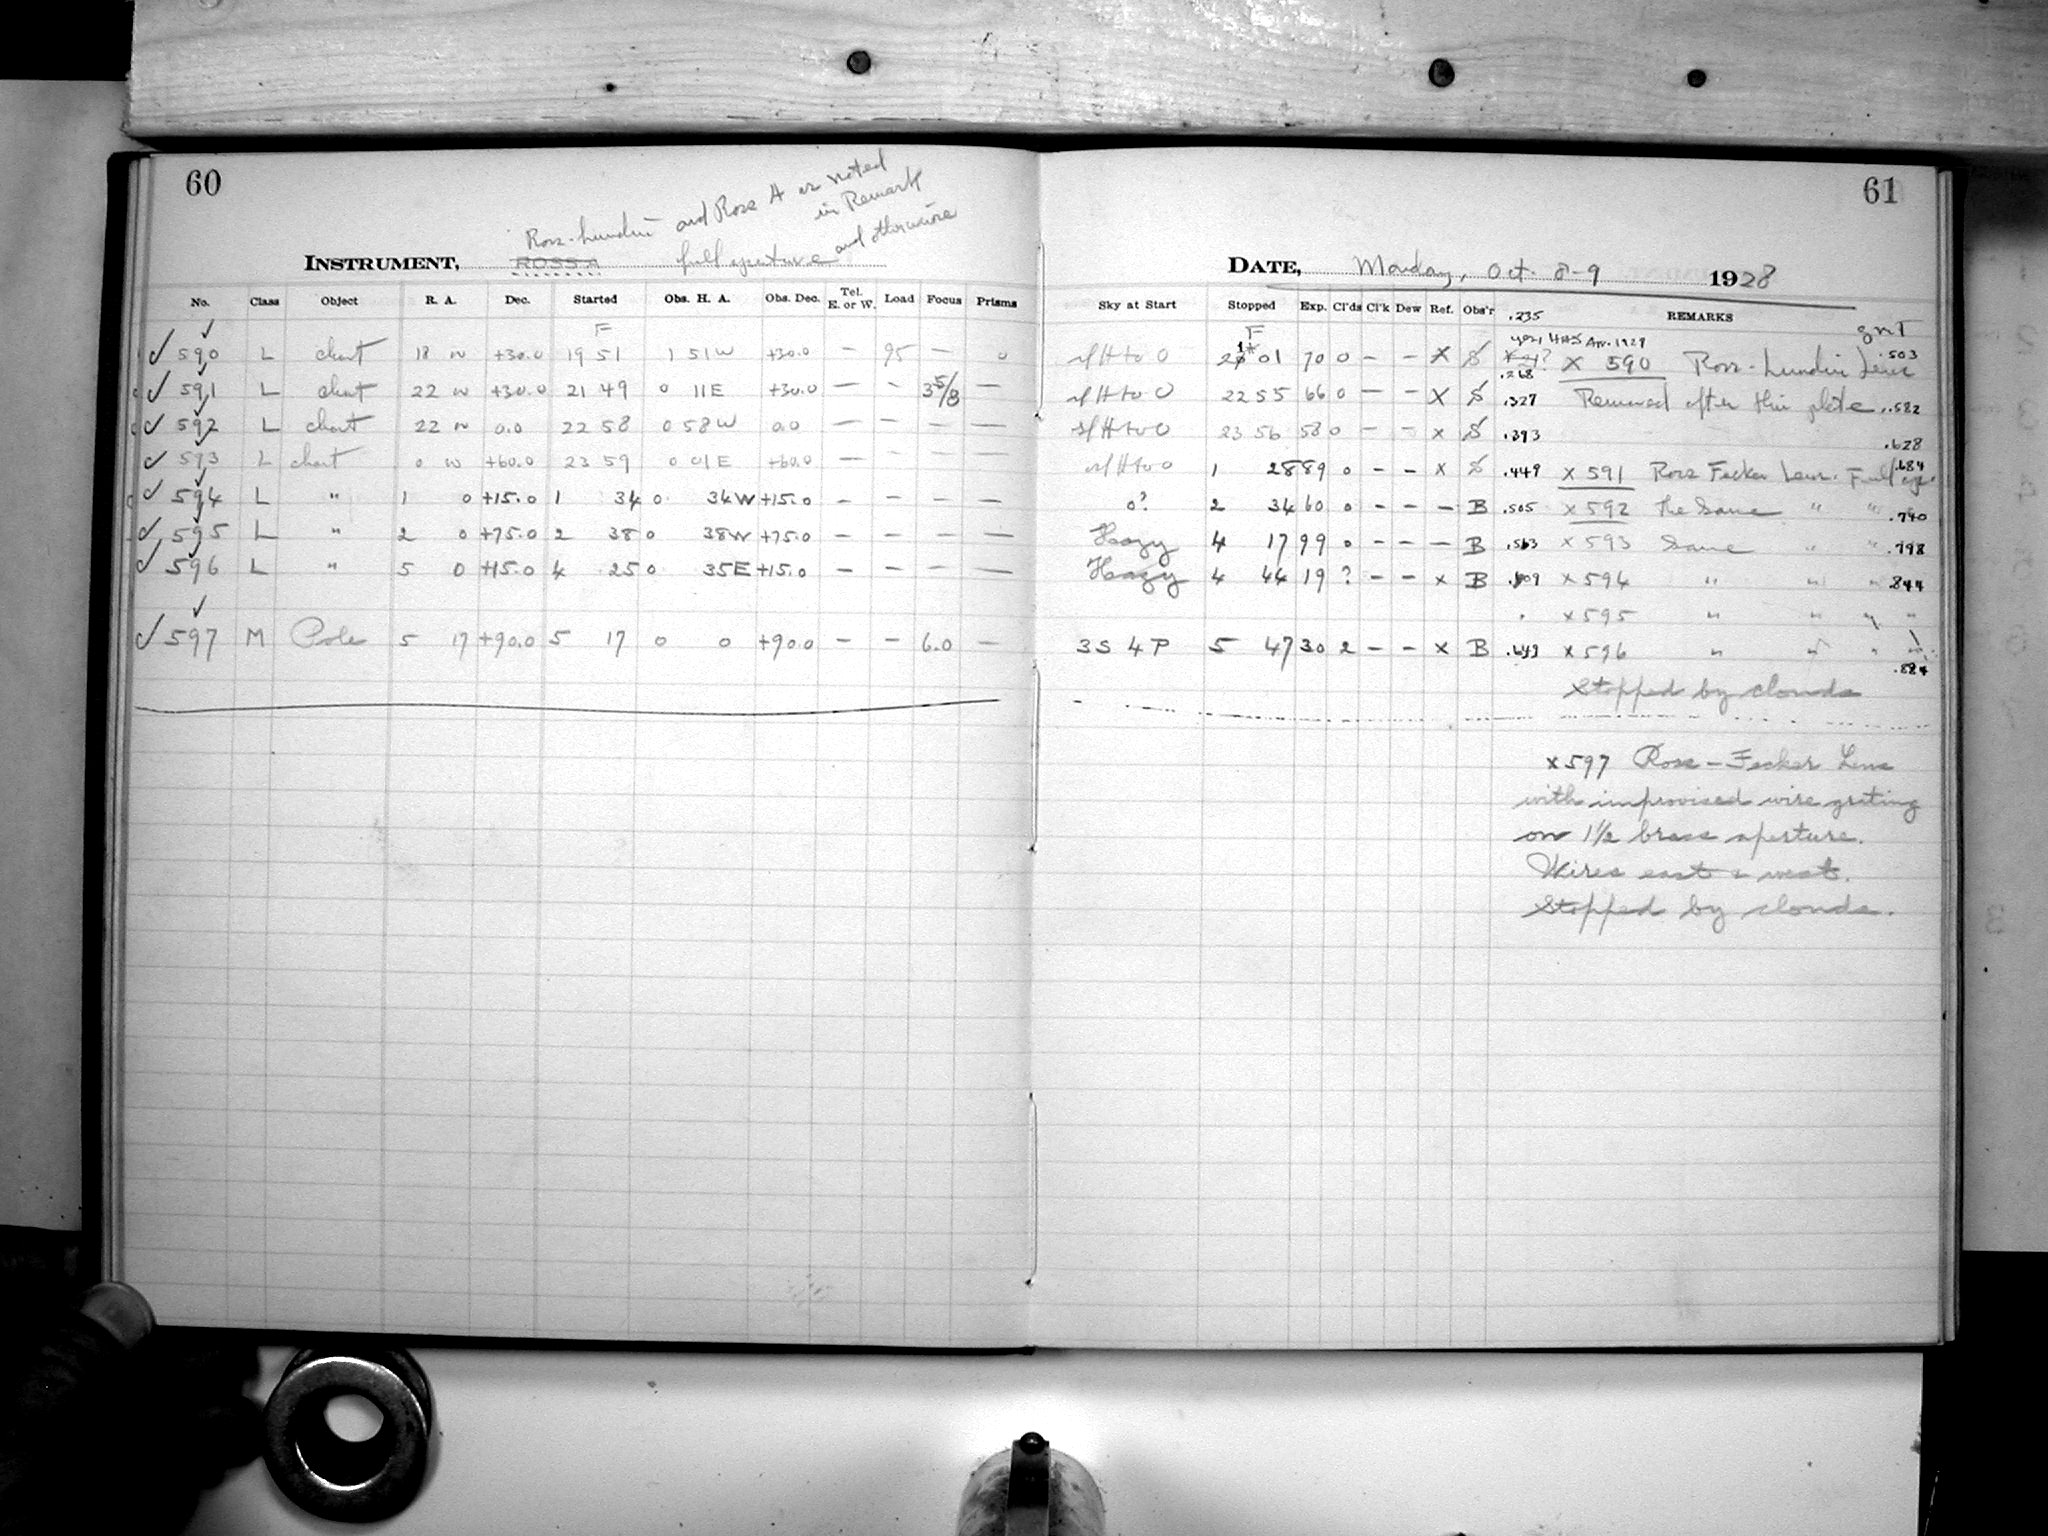 60
Ross-Lundin and Ross A as noted
in Remark
INSTRUMENT, ROSS A full aperture and otherwise
No. Class Object R. A. Dec. Started Obs. H. A. Obs. Dec. Tel. E. or W. Load Focus Prisms
F
✓ 590 L chart 18 w +30.0 19 51 1 51 W +30.0 — 95 — 0
✓ 591 L chart 22 w +30.0 21 49 0 11 E +30.0 — - 3 5/8 —
✓ 592 L chart 22 w 0.0 22 58 0 58 W 0.0 — — — —
✓ 593 L chart 0 w +60.0 23 59 0 01 E +60.0 — — — —
✓ 594 L " 1 0 +15.0 1 34 0 34 W +15.0 — — — —
✓ 595 L " 2 0 +75.0 2 38 0 38 W +75.0 — — — —
✓ 596 L " 5 0 +15.0 4 25 0 35 E +15.0 — — — —
✓ 597 M Pole 5 17 +90.0 5 17 0 0 +90.0 — — 6.0 —
61
DATE, Monday, Oct. 8-9 1928
Sky at Start Stopped Exp. Cl'ds Cl'k Dew Ref. Obs'r .235 REMARKS
F HHS Apr. 1929 GMT
01 70 0 — — x S .268 x 590 Ross-Lundin Lens .503
22 55 66 0 — — x S .327 Removed after this plate .582
23 56 58 0 — — x S .393 .628
1 28 89 0 — — x S .449 x 591 Ross Fecker Lens. Full ap. .684
0? 2 34 60 0 — — — B .505 x 592 The Same " " .740
Hazy 4 17 99 0 — — — B .563 x 593 Same " " .798
Hazy 4 44 19 ? — — x B x 594 " " " .844
x 595 " " " "
3S 4P 5 47 30 2 — — x B .649 x 596 " " " "
.884
Stopped by clouds
x 597 Ross-Fecker Lens
with improvised wire grating
on 1½ brass aperture.
Wires east & west.
Stopped by clouds.